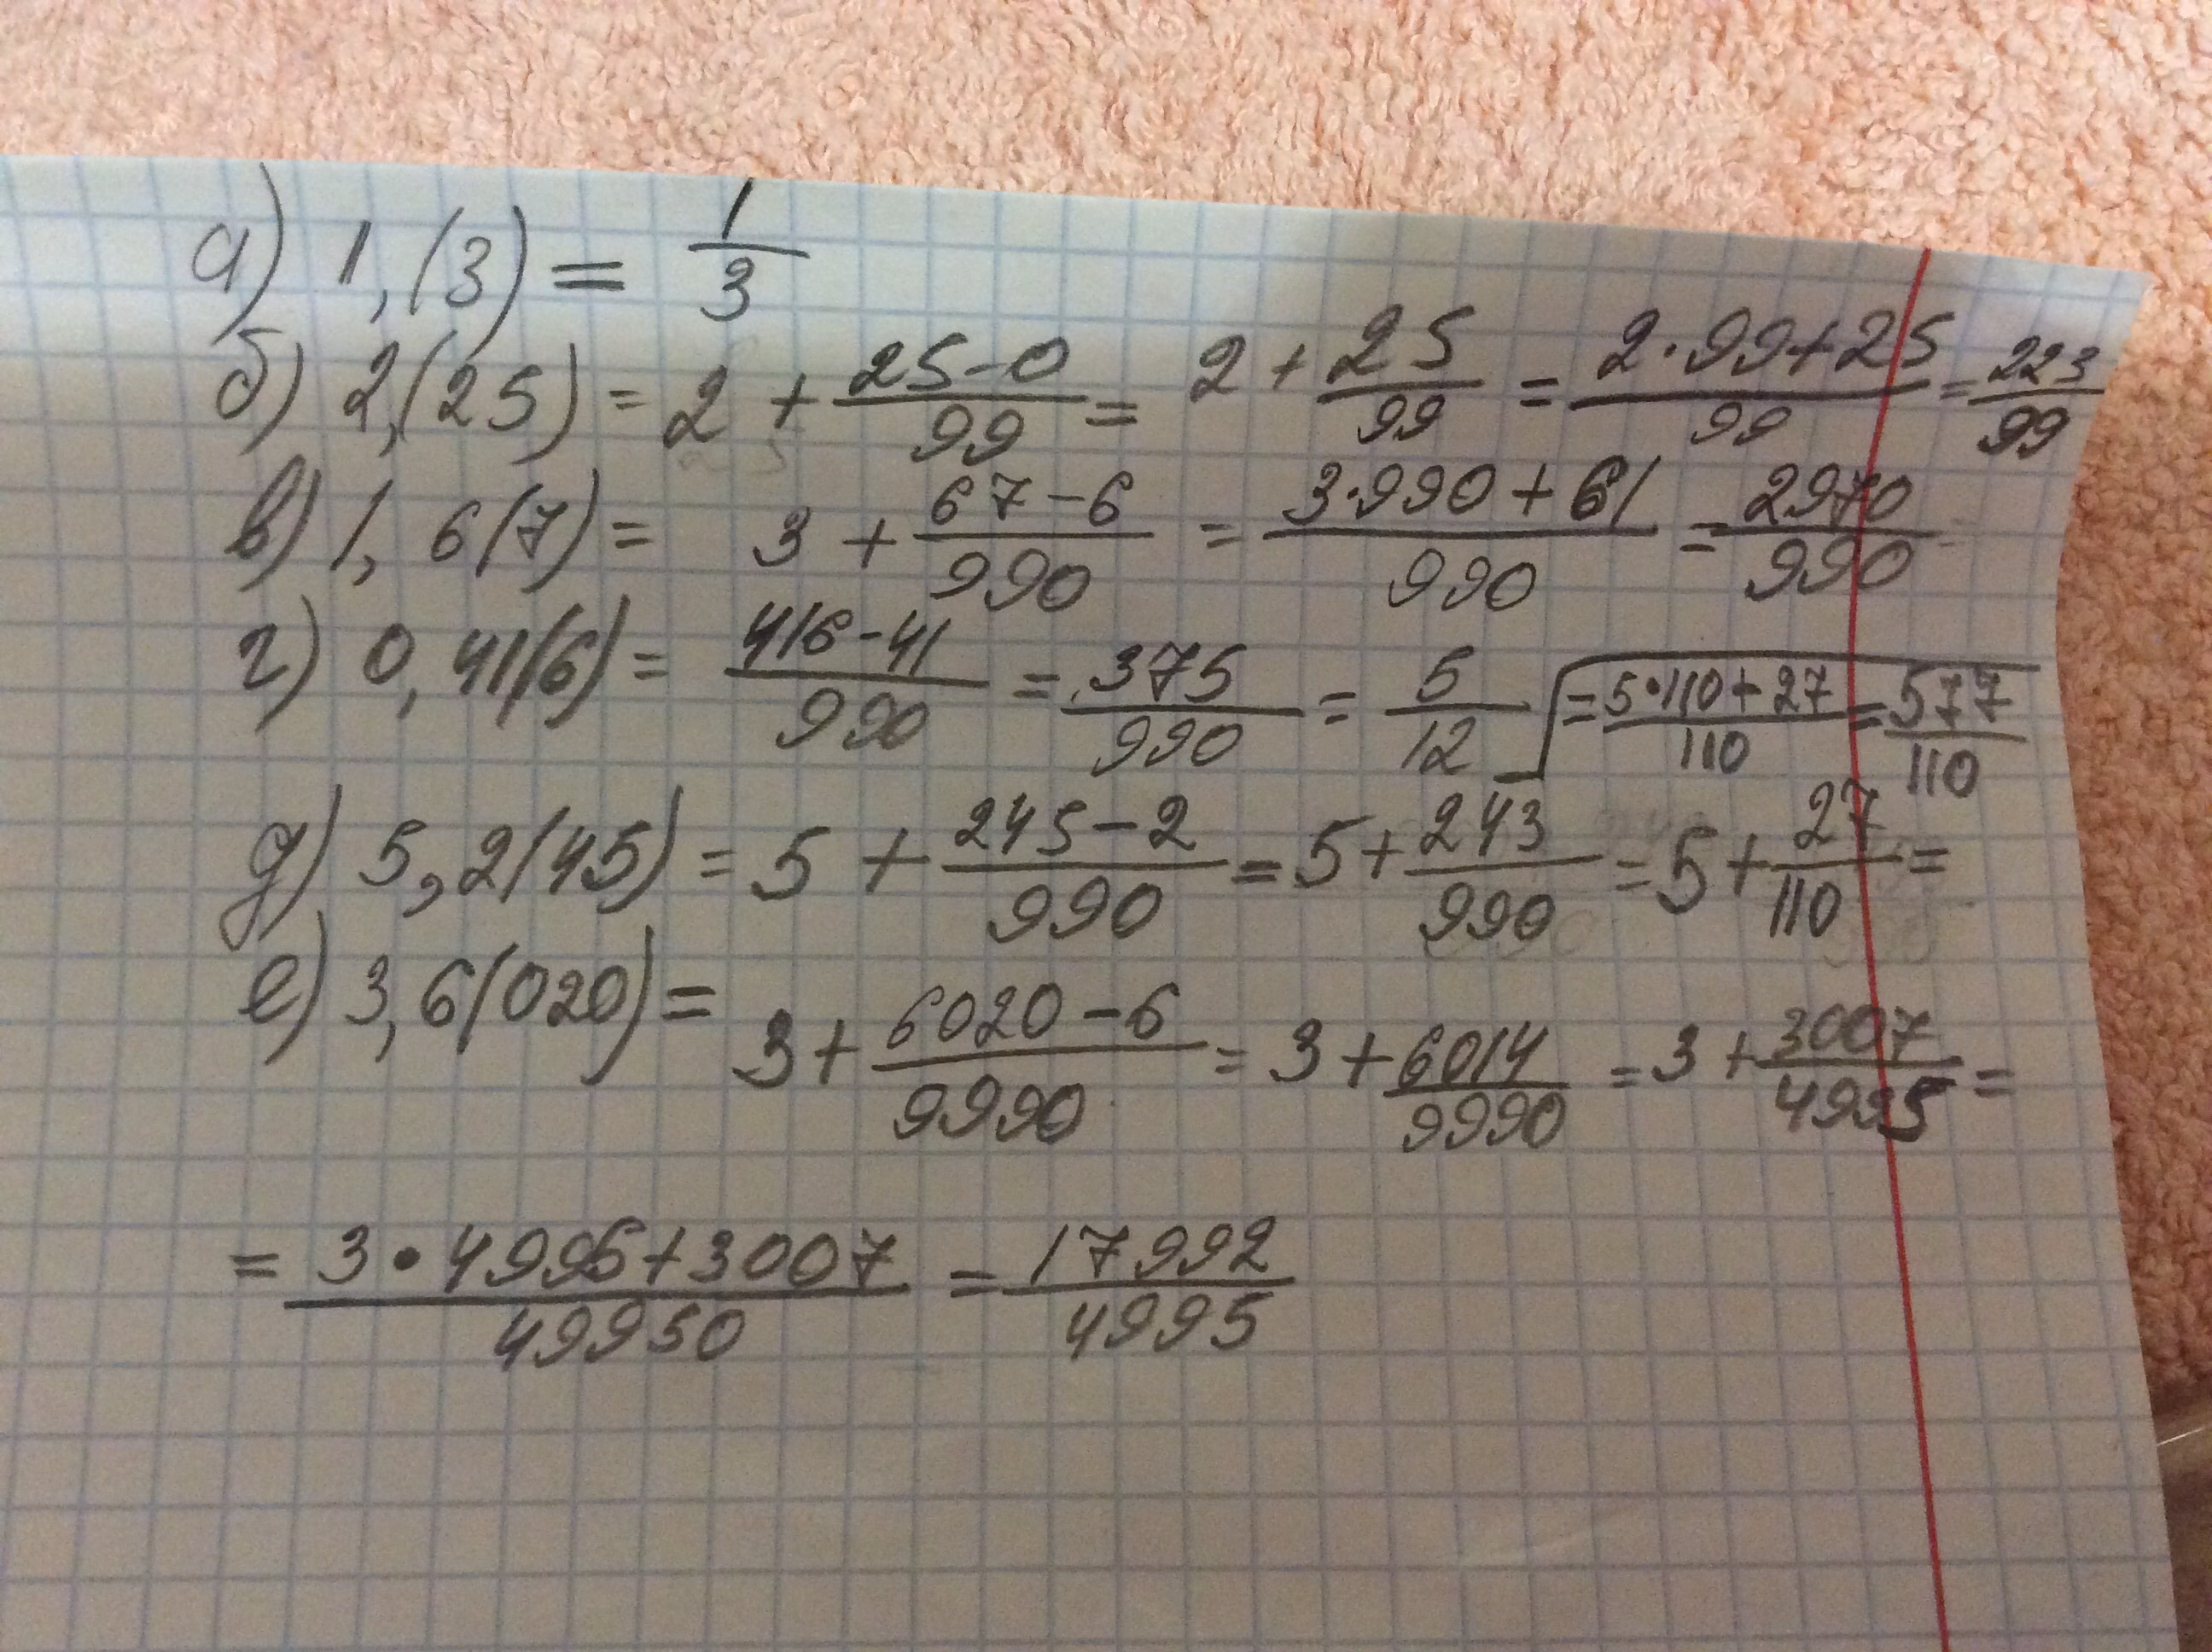 а) 1,(3) = 1/3
б) 2,(25) = 2 + (25-0)/99 = 2 + 25/99 = (2·99+25)/99 = 223/99
в) 1,6(7) = 3 + (67-6)/990 = (3·990+61)/990 = 2970/990
г) 0,41(6) = (416-41)/990 = 375/990 = 5/12 = (5·110+27)/110 = 577/110
д) 5,2(45) = 5 + (245-2)/990 = 5 + 243/990 = 5 + 27/110 =
е) 3,6(020) = 3 + (6020-6)/9990 = 3 + 6014/9990 = 3 + 3007/4995 =
= (3·4995+3007)/49950 = 17992/4995